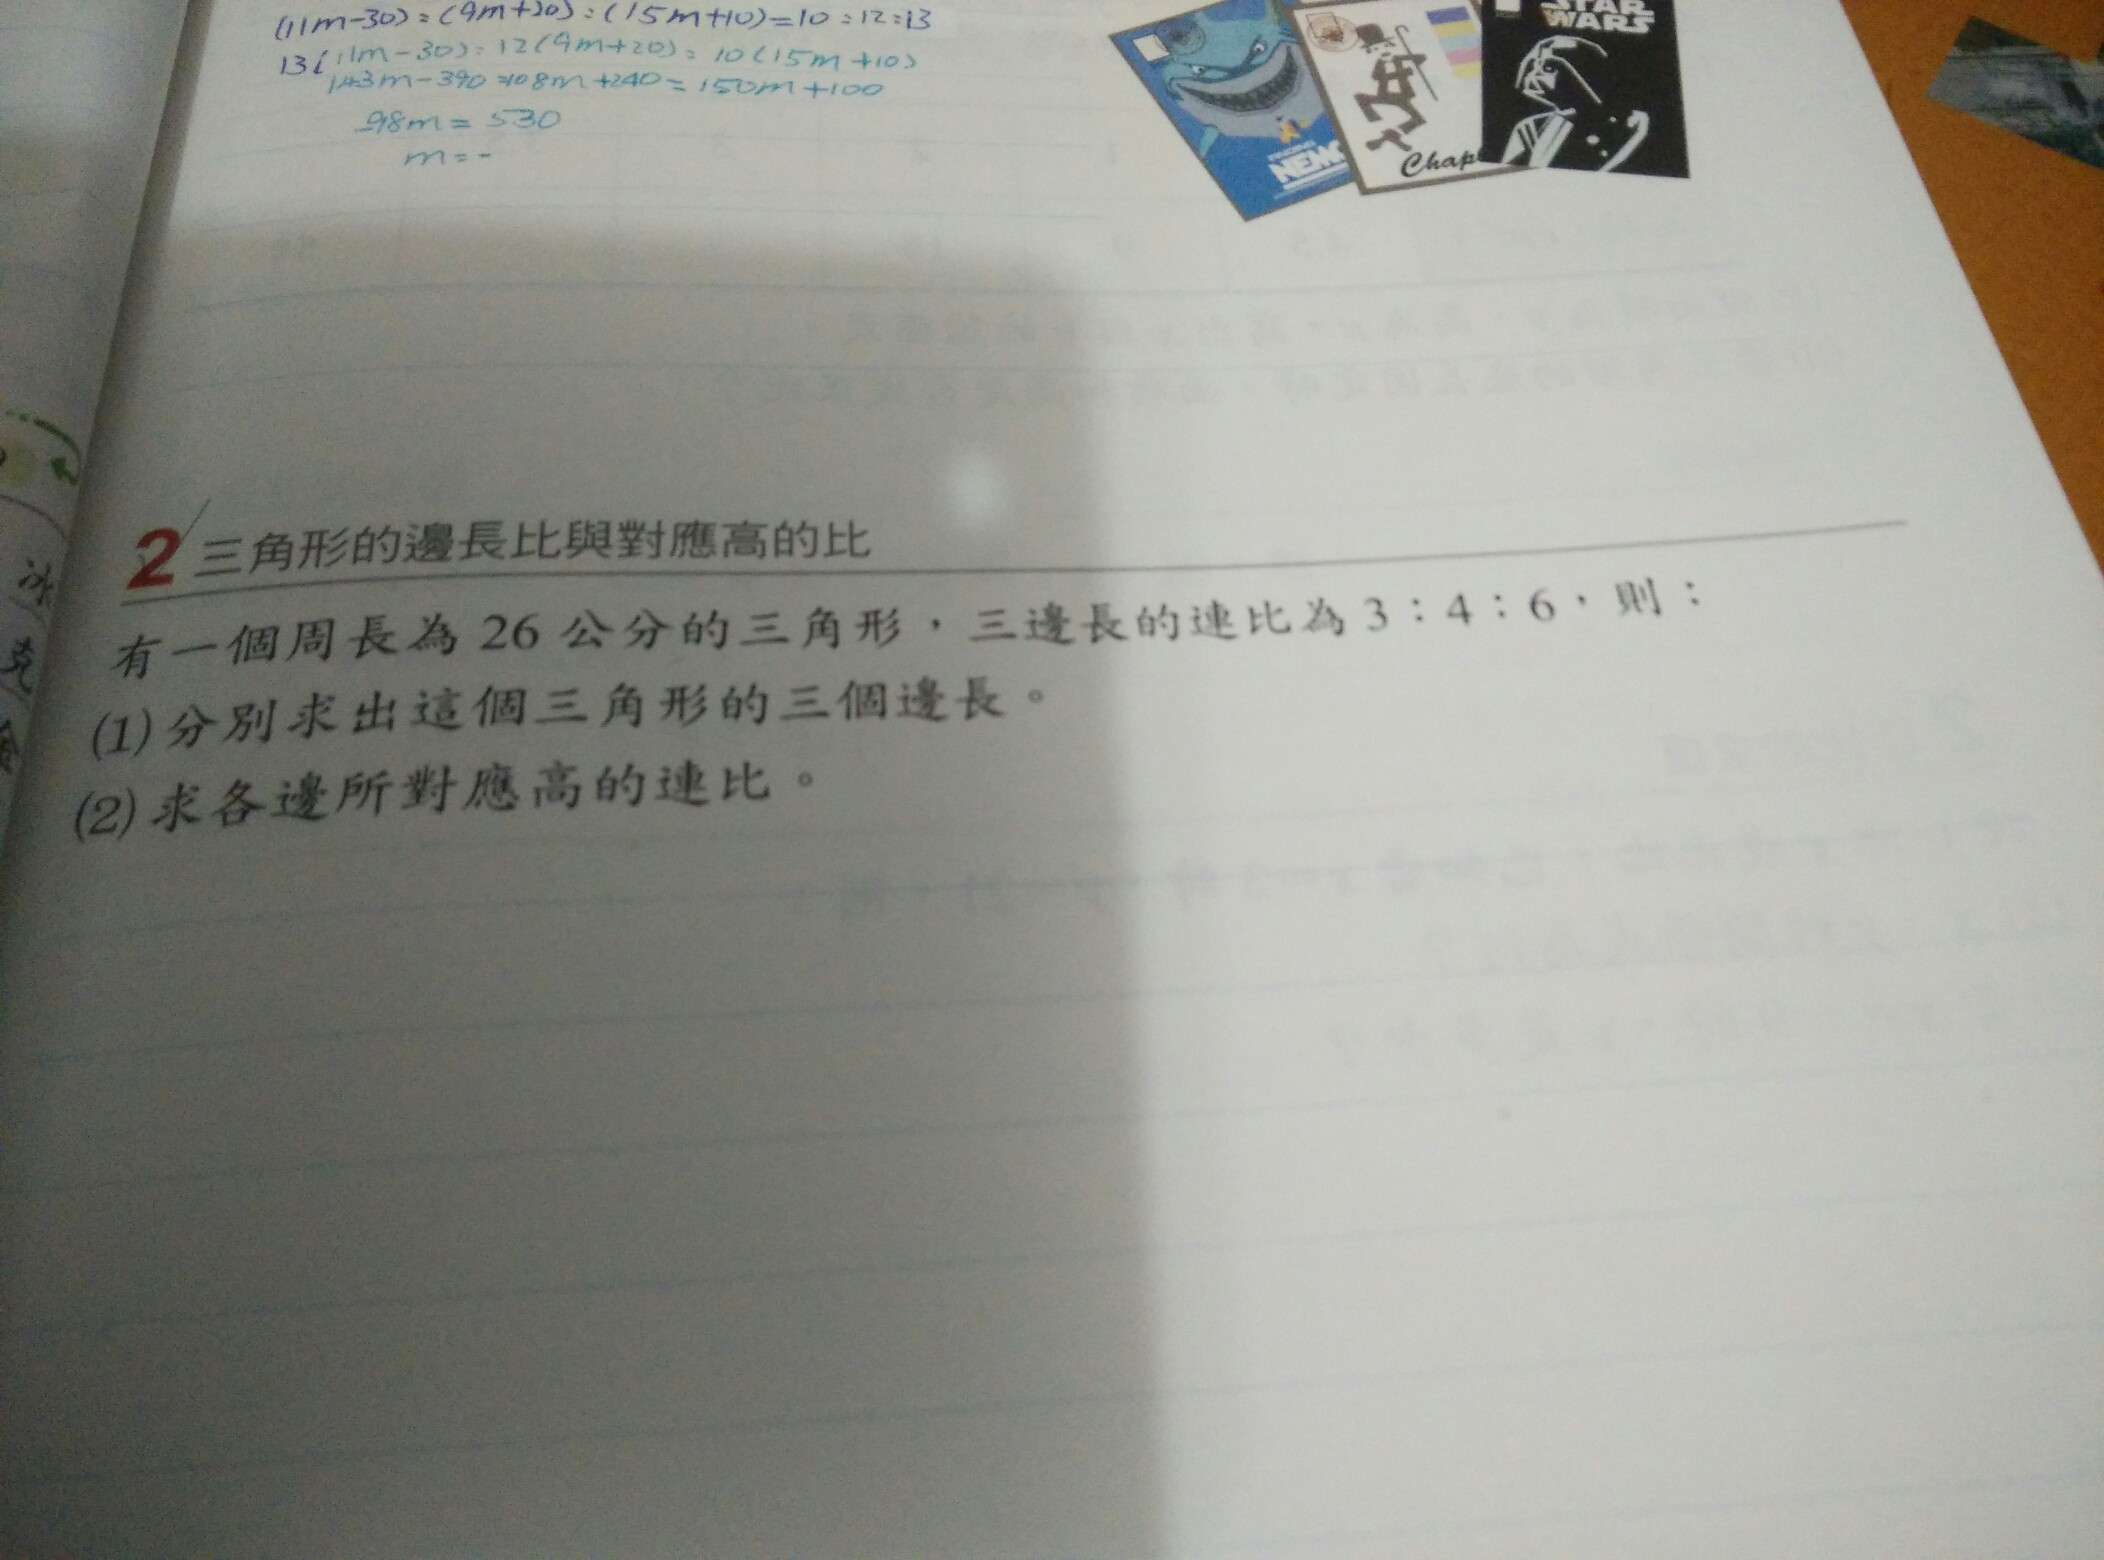 (11m-30):(9m+20):(15m+10)=10:12:13
13(11m-30):12(9m+20):10(15m+10)
143m-390=108m+240=150m+100
-98m=530
m=-
STAR
WARS
NEMO
Chap
2 三角形的邊長比與對應高的比
有一個周長為 26 公分的三角形，三邊長的連比為 3：4：6，則：
(1)分別求出這個三角形的三個邊長。
(2)求各邊所對應高的連比。
冰
克